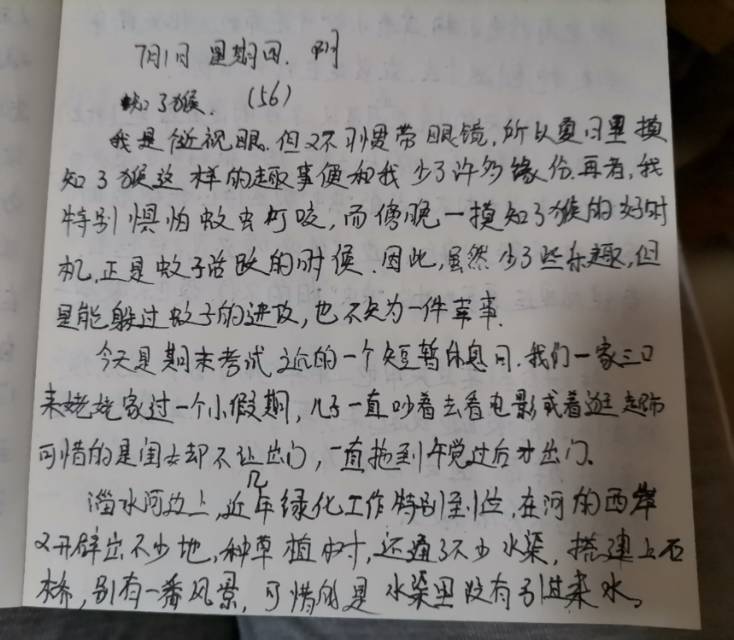 7月1日 星期四. 阴
知了猴. (56)
我是近视眼.但又不习惯带眼镜,所以夏日里摸
知了猴这样的趣事便和我少了许多缘份.再者,我
特别惧怕蚊虫叮咬,而傍晚一摸知了猴的好时
机,正是蚊子总攻的时候.因此,虽然少了些乐趣,但
是能躲过蚊子的进攻,也不失为一件幸事.
今天是期末考试之后的一个短暂休息日.我们一家三口
来姥姥家过一个小假期,儿子一直吵着去看电影或着逛超市
可惜的是闺女却不让出门,一直拖到午觉过后才出门。
淄水河边上,近几年绿化工作特别到位,在河的西岸
又开辟出不少地,种草植树,还通了不少水渠,搭建上石
桥,别有一番风景,可惜的是水渠里没有引进来水。